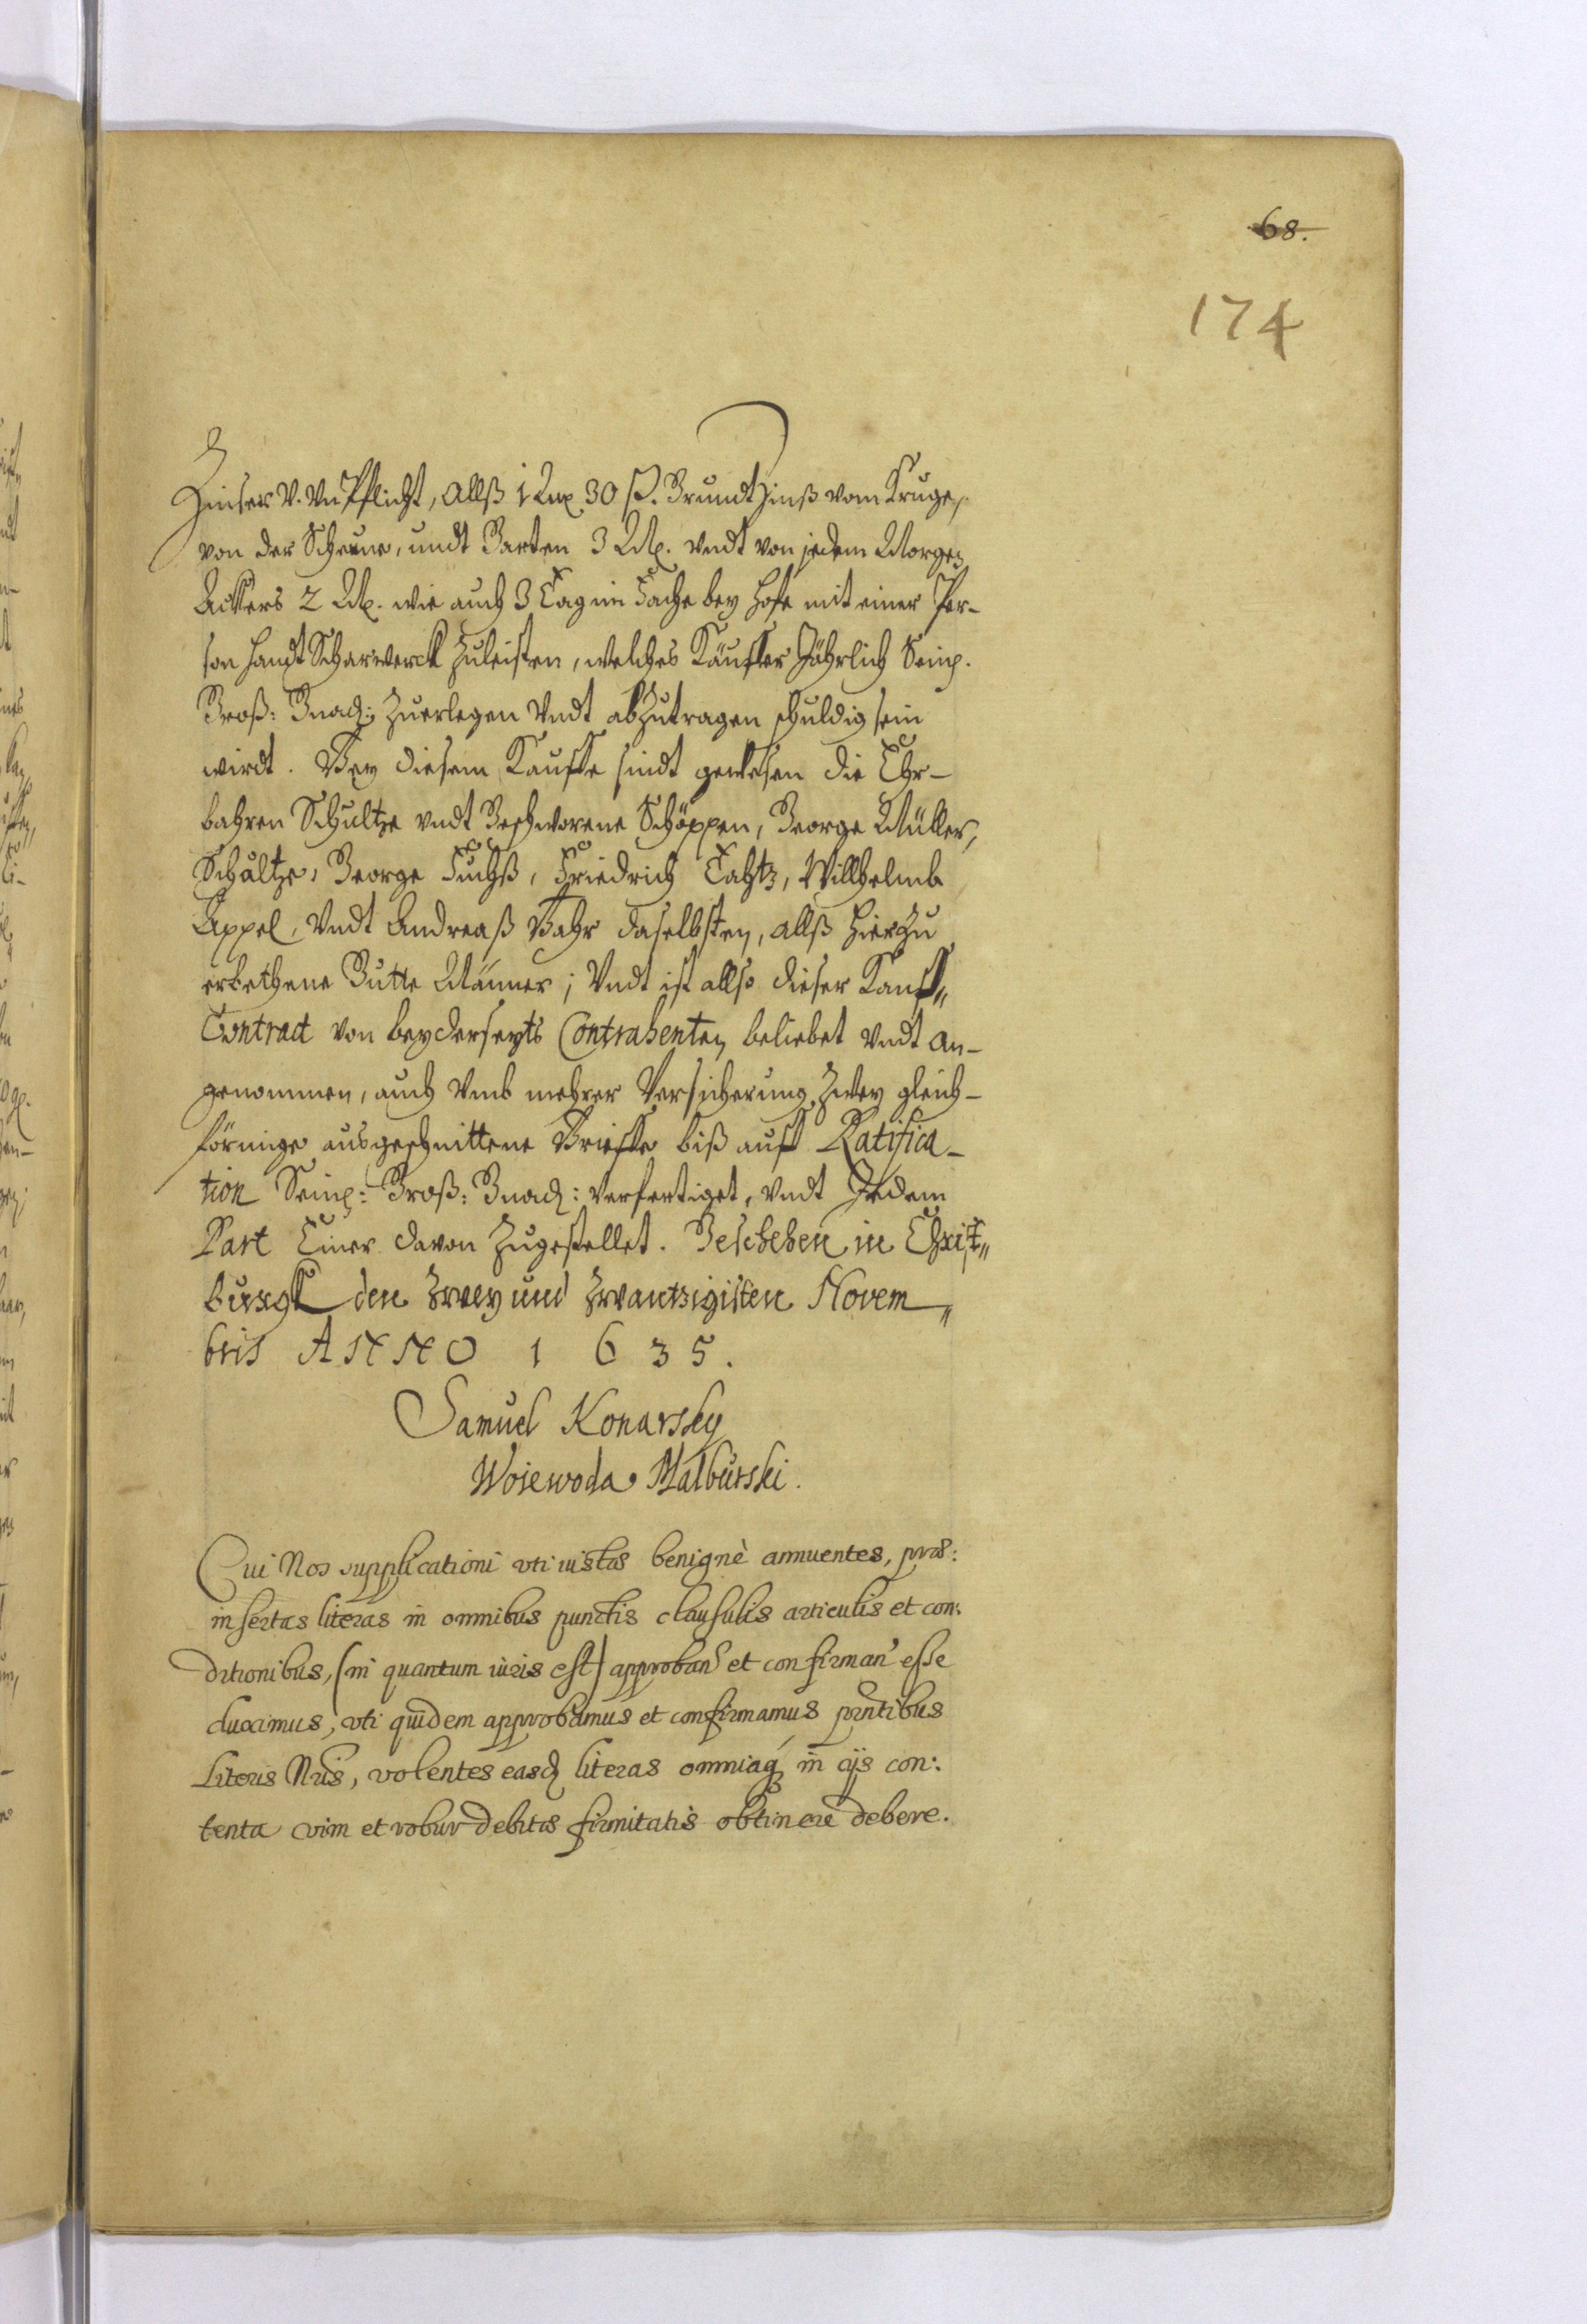 68.
174
Zinser v. Vn Pflicht, Allß 1 Rmp. 30 ß. Grundtzinß vom Kruge,
von der Scheune, undt Garten 3 M. Vndt von jedem Morgen
Ackers 2 M. wie auch 3 Tag im Fache bey Hofe mit einer Per-
son Handt Scharwerck Zuleisten, welches Käuffer Jährlich Seinr.
Groß: Gnad: Zuerlegen Vndt abzutragen schuldig sein
wirdt. Bey diesem Kauffe sindt gewesen die Ehr-
bahren Schultze vndt Geschworene Schöppen, George Müller,
Schultze, George Fuchß, Friedrich Tahtz, Willhelmb
Appel, Vndt Andreaß Bahr daselbsten, allß hierzu
erbethene Gutte Männer; Vndt ist allso dieser Kauff„
Contract von beyderseyts Contrahenten beliebet Vndt an-
genommen, auch Vmb mehrer Versicherung Zwey gleich-
förmige ausgeschnittene Brieffe biß auff Ratifica-
tion Seinr: Groß: Gnad: Verfertiget, vndt Jedem
Part Einer davon Zugestellet. Geschehen in Christ„
burgk den Zwey und Zwantzigisten Novem„
bris ANNO 1 6 3 5.
Samuel Konarsky
Woiewoda Malburski.
Cui Nos supplicationi vti iustæ benignè annuentes, præ:
insertas literas in omnibus punctis clausulis articulis et con:
ditionibus, (in quantum iuris est) approban̄ et confirman̄ esse
duximus, vti quidem approbamus et confirmamus pr̄ntibus
Literis Nr̄is, volentes easd literas omniaq in ijs con:
tenta vim et robur debitæ firmitatis obtinere debere.